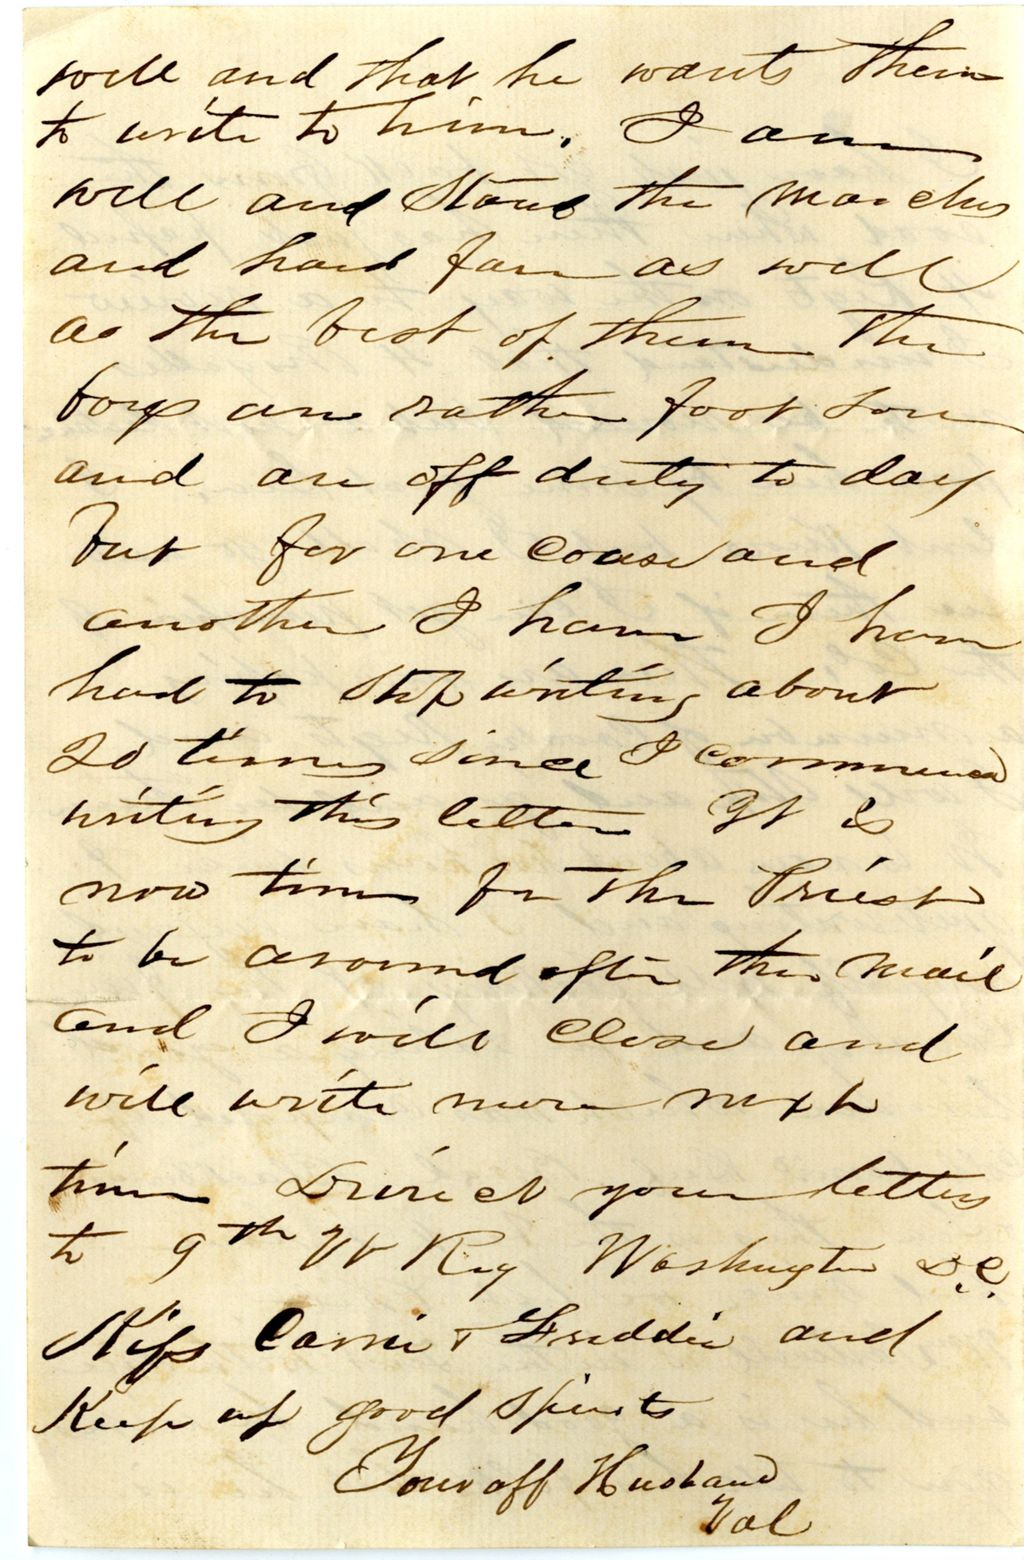 well and that he wants them
to write to him. I am
well and stand the marches
and hard fare as well
as the best of them The
boys are rather foot sore
and are off duty to day
but for one coase and
another I have I have
had to stop writing about
20 times since I commenced
writing this letter It is
now time for the Priest
to be around after the mail
and I will close and
will write more next
time Drirect your letters
to 9th Vt Reg Washington D.C.
Kiss Carrie & Freddie and
Keep up good spirits
Your aff Husband
Val